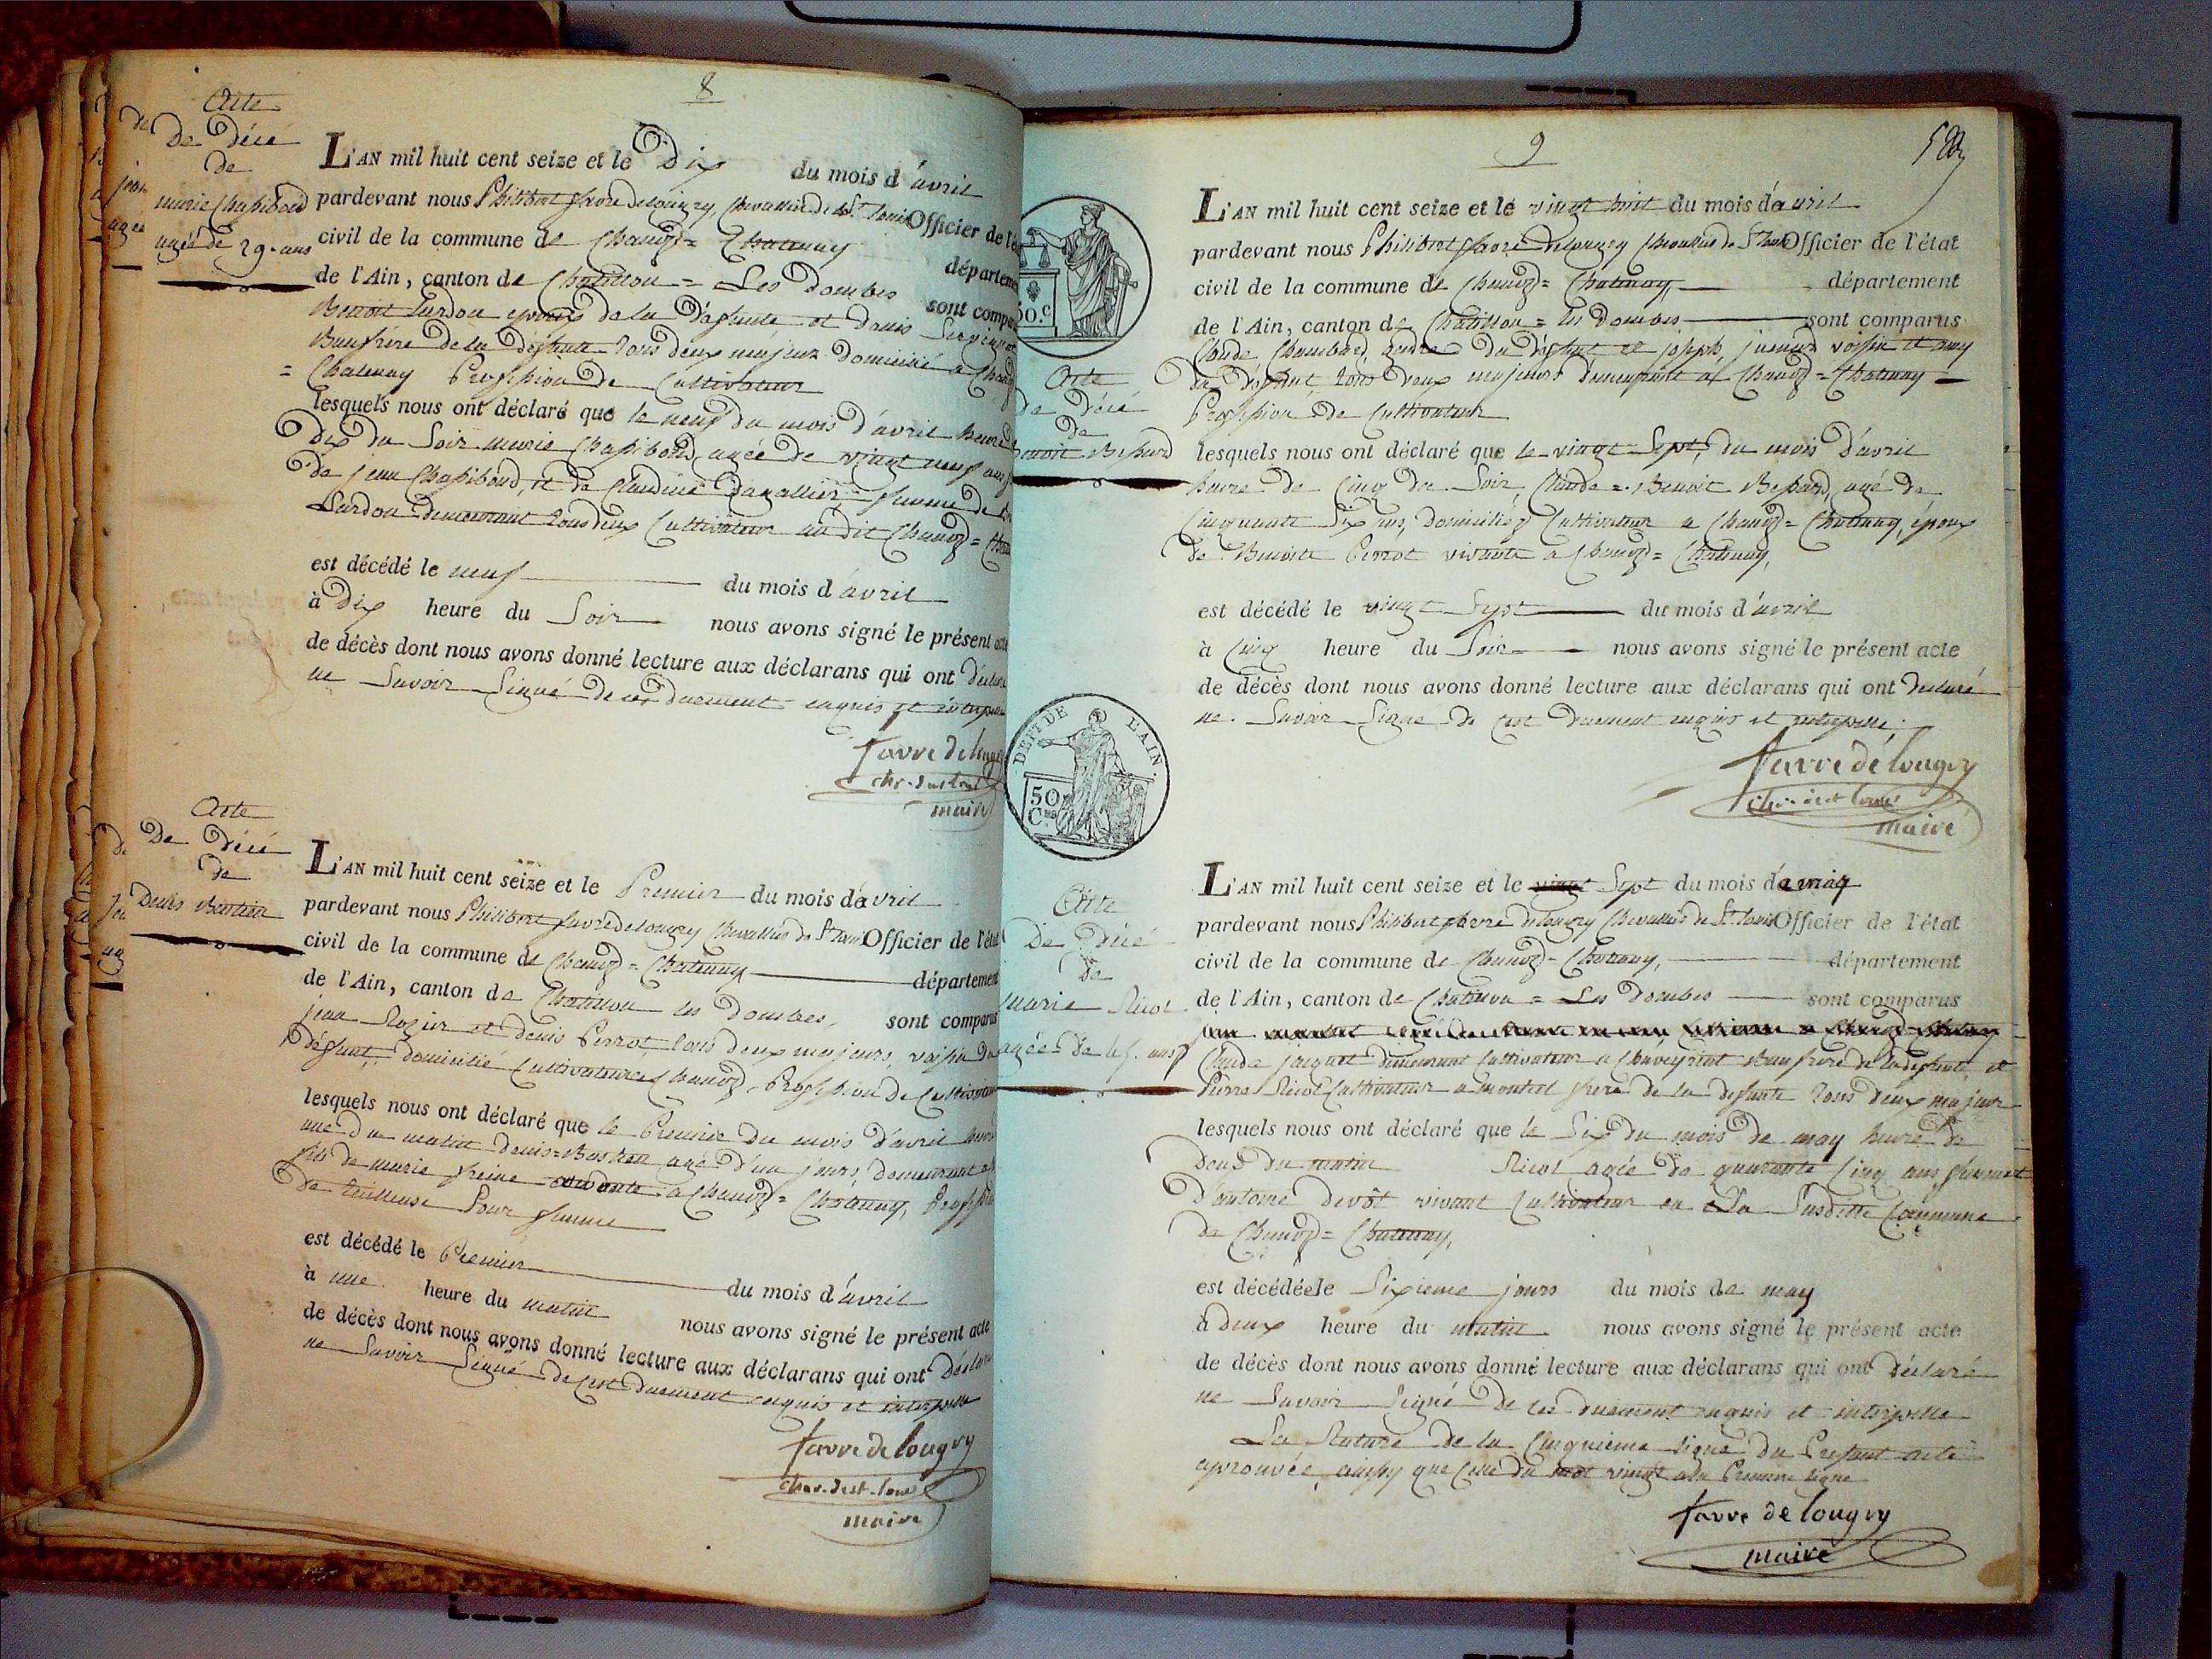 8
Acte
De Décé
de
marie Chapiboud
agée de 29. ans
L'AN mil huit cent seize et le Dix du mois d'avril
pardevant nous Philibert favre delougry Chevallier de St. Louis Officier de l'é
civil de la commune de Chanoz = Chatenay départeme
de l'Ain, canton de Chatillon = Les Dombes sont compa
Benoit Lurdon epoux de la défunte et Denis
Beaufrére de la defunte tous deux majeur domicilié a Chano
= Chatenay Profession de Cultivateur
lesquels nous ont déclaré que le neuf du mois d'avril heure de
Dix du Soir marie Chapiboud, agée de vingt neuf ans
de jean Chapiboud, et de Claudine femme de
Lurdon demeurant tous deux Cultivateur au dit Chanoz =
est décédé le neuf du mois d'avril
à Dix heure du Soir nous avons signé le présent acte
de décès dont nous avons donné lecture aux déclarans qui ont Déclaré
ne Savoir Signé de ce duement enquis et interpelle
favre delougry
chr. de st Louis
maire
Acte
De Décé
de
Denis Bastien
L'AN mil huit cent seize et le Premier du mois d'avril
pardevant nous Philibert favre delougry Chevallier de St Louis Officier de l'état
civil de la commune de Chanoz = Chatenay département
de l'Ain, canton de Chatillon les Dombes, sont comparus
jean Rozier et denis Perrot tous deux majeurs, voisin du
défunt, domicilié Cultivateur a Chanoz, Profession de Cultivateur
lesquels nous ont déclaré que le Premier du mois d'avril heure
une du matin denis = Bastien agé d'un jours, demeurant
fils de marie freine vivante a Chanoz = Chatenay, Profession
de tailleuse Pour femme
est décédé le Premier du mois d'avril
à une heure du matin nous avons signé le présent acte
de décès dont nous avons donné lecture aux déclarans qui ont Déclaré
ne Savoir Signé de cest duement enquis et interpelle
favre de lougry
chev. de st. Louis
maire
9
50.c
Acte
de Décé
de
Benoit Bessard
L'AN mil huit cent seize et le vingt huit du mois d'avril
pardevant nous Philibert favre delougry Chevallier de St Louis Officier de l'état
civil de la commune de Chanoz = Chatenay département
de l'Ain, canton de Chatillon = les dombes sont comparus
Claude Chambard, gendre du défunt et joseph voisin et amy
du défunt tous deux majeurs demeurant a Chanoz = Chatenay
Profession de Cultivateur
lesquels nous ont déclaré que le vingt Sept du mois d'avril
heure de Cinq du Soir, Claude = Benoit Bessard, agé de
Cinquante Six ans, domicilié Cultivateur a Chanoz = Chatenay, époux
de Benoite Perrot vivante a Chanoz = Chatenay,
est décédé le vingt Sept du mois d'avril
à Cinq heure du Soir nous avons signé le présent acte
de décès dont nous avons donné lecture aux déclarans qui ont declaré
ne Savoir Signe de cest duement enquis et interpelle
favre de lougry
chr. de st Louis
maire
DEP.T DE L'AIN.
50 C.
Acte
De Décé
De
marie Nicol
agée de 45. ans
L'AN mil huit cent seize et le vingt Sept du mois de may
pardevant nous Philibert favre delougry Chevallier de St. Louis Officier de l'état
civil de la commune de Chanoz = Chatenay, département
de l'Ain, canton de Chatillon = Les Dombes sont comparus
Claude jacquet demeurant Cultivateur a Chaveyriat Beaufrere de la defunte, et
Pierre Nicol Cultivateur a montcel frere de la defunte tous deux majeur
lesquels nous ont déclaré que le Six du mois de may heure de
deux du matin Nicol agée de quarante Cinq ans, femme
d'antoine devôt vivant Cultivateur en La Susditte Commune
de Chanoz = Chatenay,
est décédée le Sixieme jours du mois de may
à deux heure du matin nous avons signé le présent acte
de décès dont nous avons donné lecture aux déclarans qui ont Déclaré
ne Savoir Signé De ces duement enquis et interpelle
La Rature de la Cinquieme ligne du Present acte
aprouvée, ainssy que Celle du mot vingt a la Premiere ligne
favre de lougry
maire